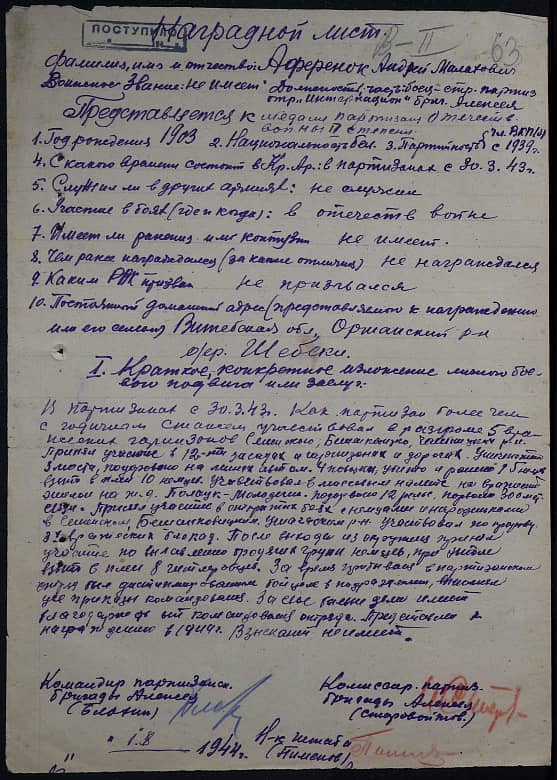 ПОСТУПИЛО
Наградной лист
II 63
Фамилия, имя и отчество Аференок Андрей
Воинское звание: не имеет Должность, часть: боец-стр. партиз.
отр. "Интернацион" бриг. Алексея
Представляется к медали партизан Отечеств.
войны II степени
чл. ВКП(б)
1. Год рождения 1903 2. Национальность бел. 3. Партийность с 1939г.
4. С какого времени состоит в Кр. Ар.: в партизанах с 30.3.43г.
5. Служил ли в других армиях: не служил
6. Участие в боях (где и когда): в отечеств войне
7. Имеет ли ранения или контузии не имеет.
8. Чем ранее награждался (за какие отличия) не награждался
9. Каким РВК призван не призвался
10. Постоянный домашний адрес (представляемого к награждению
или его семьи) Витебская обл, Оршанский р-н
дер. Шебеки.
I. Краткое, конкретное изложение личного бое-
вого подвига или заслуг:
В партизанах с 30.3.43г. Как партизан более чем
с годичным стажем участвовал в разгроме 5 вра-
жеских гарнизонов Сенненско, р-н.
Принял участие в 12-ти засадах на и дорогах.
3 моста, подорвано на минах убито и ранено
взято в плен 10 немцев. Участвовал в массовом налете на
на ж.д. Полоцк-Молодечн. подорвано 12 рельс,
Принял участие в боях с немцами и народниками
в Сенненском, Бешанковицком, р-н участвовал по прорыву
3х вражеских блокад. После выхода из окружен. принял
участие по вылавлению групп немцев, про убито
взято в плен 8 гитлеровцев. За время пребыван в партизанском
отряде был дисциплинированным бойцом в подразделен,
все приказы командования. За свои дела имел
благодарность от командования отряда. Представлен к
награждению в 1944г. Взыскани не имел.
Командир партизанск.
бригады Алексея
(Блохин)
Комиссар партиз.
бригады Алексея
(Старовойтов.)
" 1.8 1944г. Н-к штаба
(Пименов)